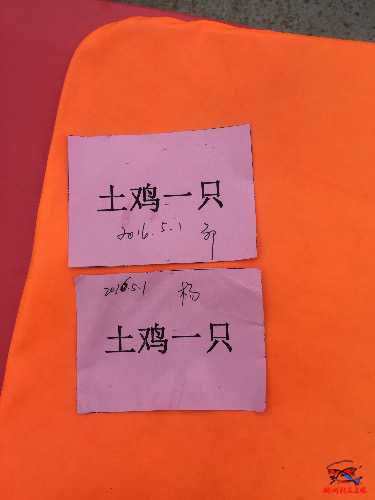 土鸡一只
2016.5.1
2016.5.1 杨
土鸡一只